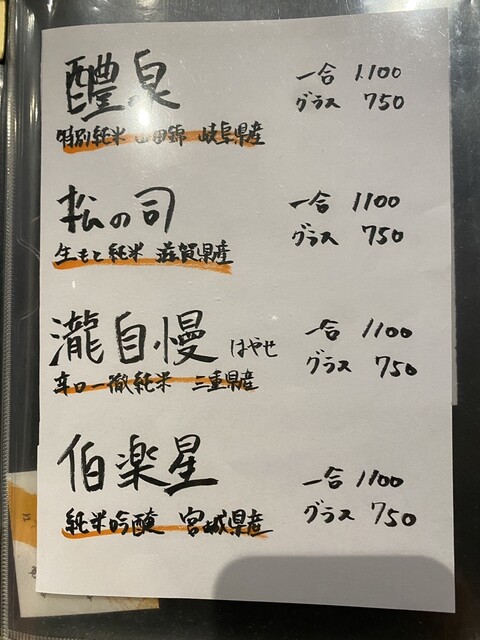 醴泉 一合 1100
特別純米 山田錦 岐阜県産 グラス 750
松の司 一合 1100
生もと純米 滋賀県産 グラス 750
瀧自慢 はやせ 一合 1100
辛口一徹純米 三重県産 グラス 750
伯楽星 一合 1100
純米吟醸 宮城県産 グラス 750